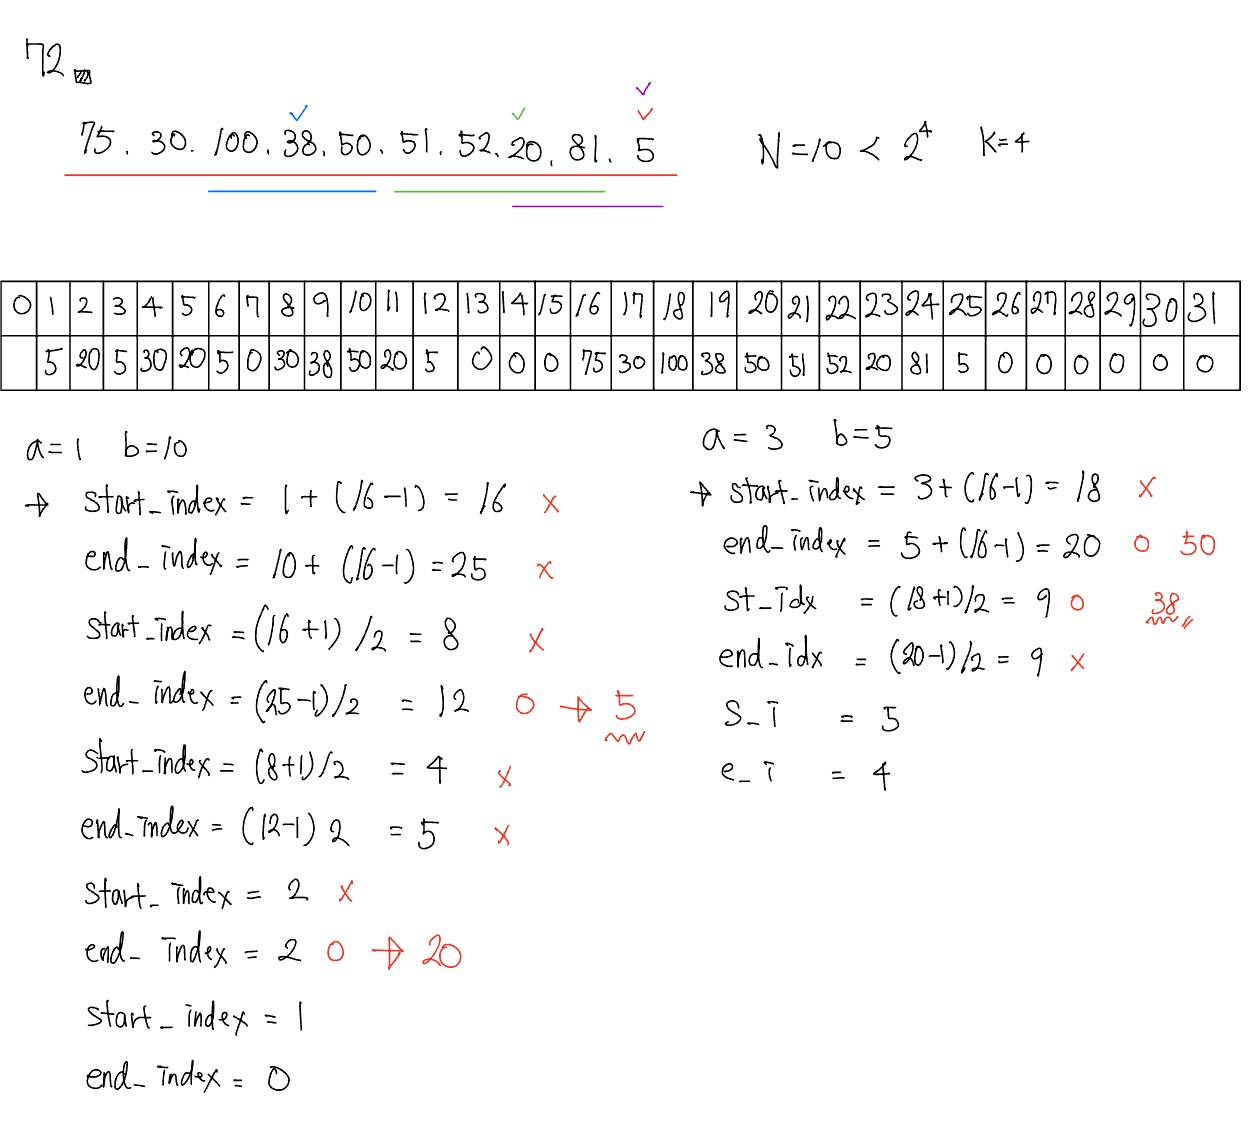 72.
75. 30. 100. 38. 50. 51. 52. 20. 81. 5
N=10 < 2^4 K=4
0 1 2 3 4 5 6 7 8 9 10 11 12 13 14 15 16 17 18 19 20 21 22 23 24 25 26 27 28 29 30 31
5 20 5 30 20 5 0 30 38 50 20 5 0 0 0 75 30 100 38 50 51 52 20 81 5 0 0 0 0 0 0
a=1 b=10
→ start_index = 1+(16-1) = 16 x
end_index = 10+ (16-1) =25 x
start_index =(16+1) /2 = 8 x
end_index =(25-1)/2 = 12 0 → 5
start_index= (8+1)/2 = 4 x
end_index= (12-1) 2 = 5 x
start_index = 2 x
end_index = 2 0 → 20
start_index = 1
end_index = 0
a= 3 b=5
→ start_index = 3+(16-1) = 18 x
end_index = 5+(16-1) = 20 0 50
st_idx = (18+1)/2 = 9 0 38
end_idx = (20-1)/2 = 9 x
s_i = 5
e_i = 4